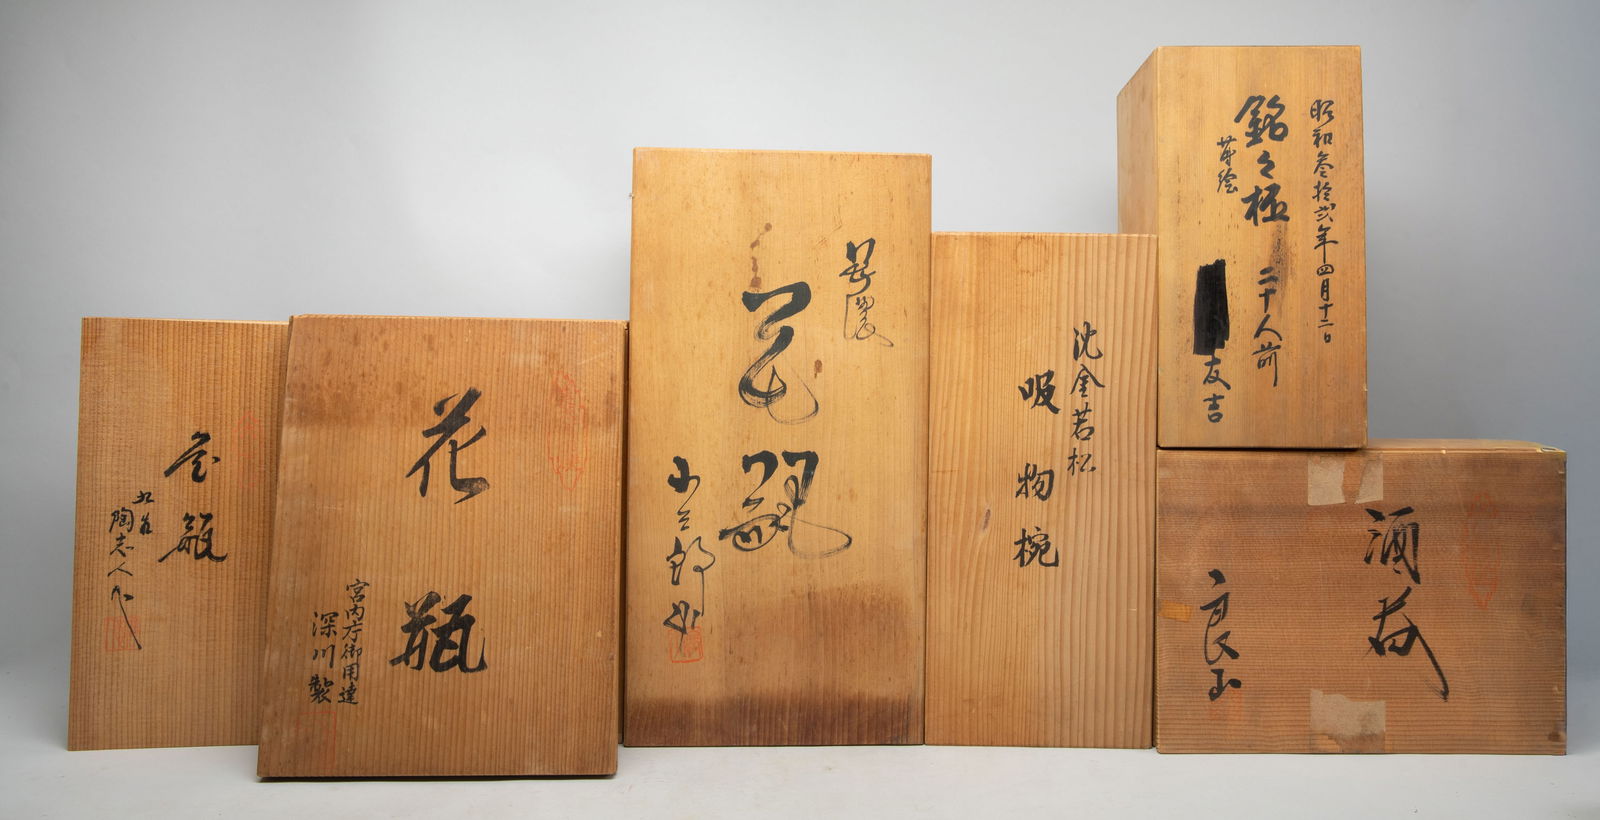 花瓶
九谷
陶志人作
花瓶
宮内庁御用達
深川製
花瓶
沈金若松
吸物椀
昭和参拾弐年四月十二日
銘々極
蒔絵
二十人前
友吉
酒器
良山